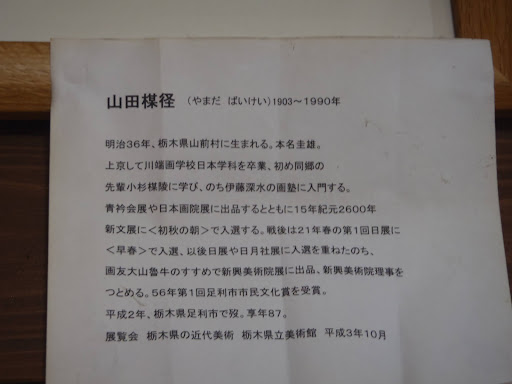 山田楳径 （やまだ ばいけい）1903～1990年
明治36年、栃木県山前村に生まれる。本名圭雄。
上京して川端画学校日本学科を卒業、初め同郷の
先輩小杉楳陵に学び、のち伊藤深水の画塾に入門する。
青衿会展や日本画院展に出品するとともに15年紀元2600年
新文展に＜初秋の朝＞で入選する。戦後は21年春の第1回日展に
＜早春＞で入選、以後日展や日月社展に入選を重ねたのち、
画友大山魯牛のすすめで新興美術院展に出品、新興美術院理事を
つとめる。56年第1回足利市市民文化賞を受賞。
平成2年、栃木県足利市で歿。享年87。
展覧会 栃木県の近代美術 栃木県立美術館 平成3年10月